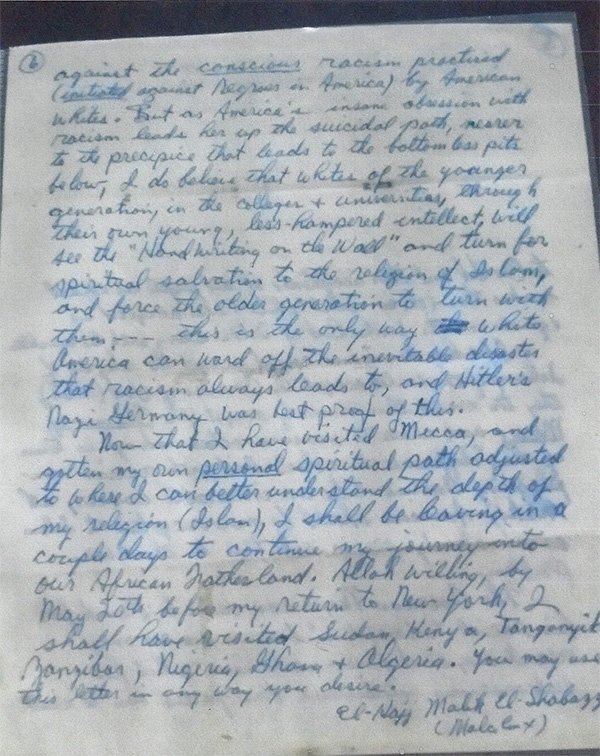 6
against the conscious racism practiced
(initiated against Negroes in America) by American
whites. But as America's insane obsession with
racism leads her up the suicidal path, nearer
to the precipice that leads to the bottomless pits
below, I do believe that whites of the younger
generation, in the colleges & universities, through
their own young, less-hampered intellect, will
see the "Handwriting on the Wall" and turn for
spiritual salvation to the religion of Islam,
and force the older generation to turn with
them---- this is the only way white
America can ward off the inevitable disaster
that racism always leads to, and Hitler's
Nazi Germany was best proof of this.
Now that I have visited Mecca, and
gotten my own personal spiritual path adjusted
to where I can better understand the depth of
my religion (Islam), I shall be leaving in a
couple days to continue my journey into
our African Fatherland. Allah willing, by
May 20th before my return to New York, I
shall have visited Sudan, Kenya, Tanganyik
Zanzibar, Nigeria, Ghana & Algeria. You may use
this letter in any way you desire.
El-Hajj Malik El-Shabazz
(Malcolm X)